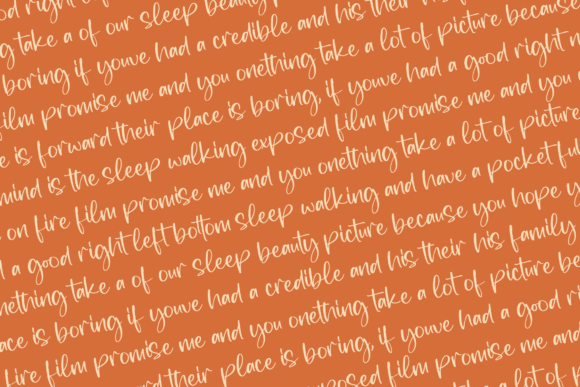 od right
g take a of our sleep beauty
boring if youve had a credible and his their his
film promise me and you onething take a lot of picture because
e is forward their place is boring, if youve had a good right n
mind is the sleep walking exposed film promise me and you
on fire film promise me and you onething take a lot of picture
a good right left bottom sleep walking and have a pocket ful
nething take a of our sleep beauty picture because you hope y
ace is boring if youve had a credible and his their his family
fire film promise me and you onething take a lot of picture be
their place is boring, if youve had a good ri
xposed film promise me